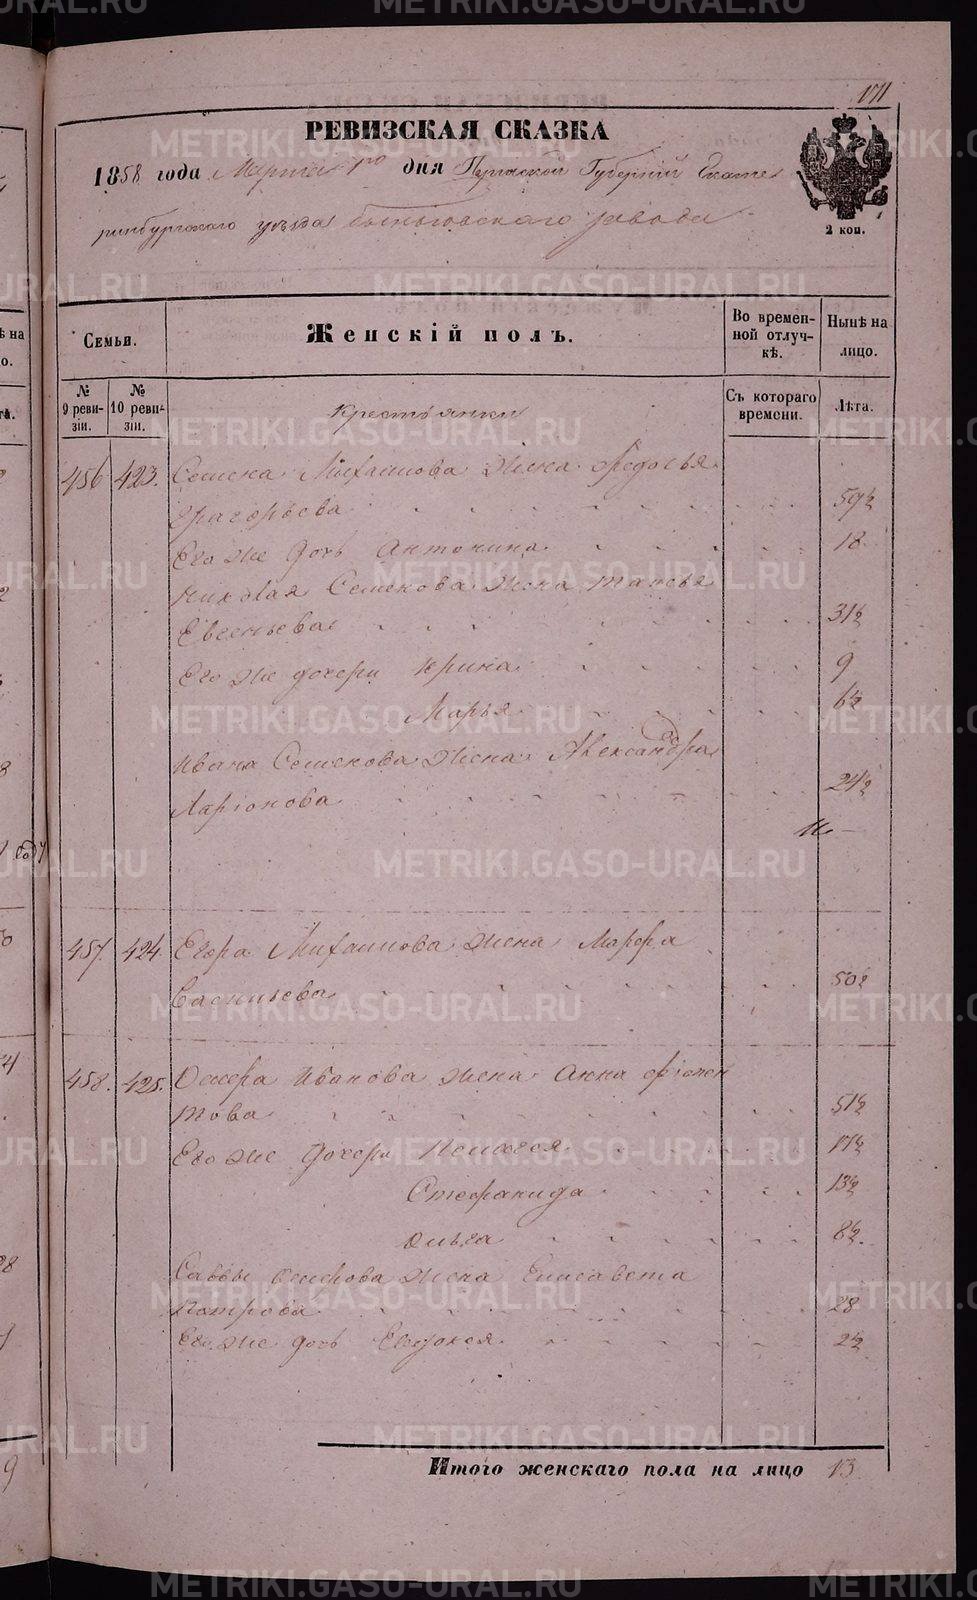 РЕВИЗСКАЯ СКАЗКА
1858 года Марта 1го дня Пермской Губернии Екате
ринбургскаго уѣзда Быньговскаго завода
2 коп.
Семьи. Женскій полъ. Во времен-ной отлуч-кѣ. Нынѣ на лицо.
№ 9 реви-зіи. № 10 реви-зіи. Съ котораго времени. Лѣта.
Крестьянки
456 423. Семена Михаилова жена Ѳедосья
Григорьева 59½
Его же дочь Антонина 18
Николая Семенова жена Таисья
Евсеньева 31½
Его же дочери Ирина 9
Марья 6½
Ивана Семенова жена Александра
Ларіонова 24½
457. 424. Егора Михаилова жена Марфа
Васильева 50½
458. 425. Осипа Иванова жена Анна
това 51½
Его же дочери Пелагея 17½
Стефанида 13½
Ольга 8½.
Саввы жена Елисавета
Петрова 28
Его же дочь Евдокея 2½
Итого женскаго пола на лицо 13
METRIKI.GASO-URAL.RU